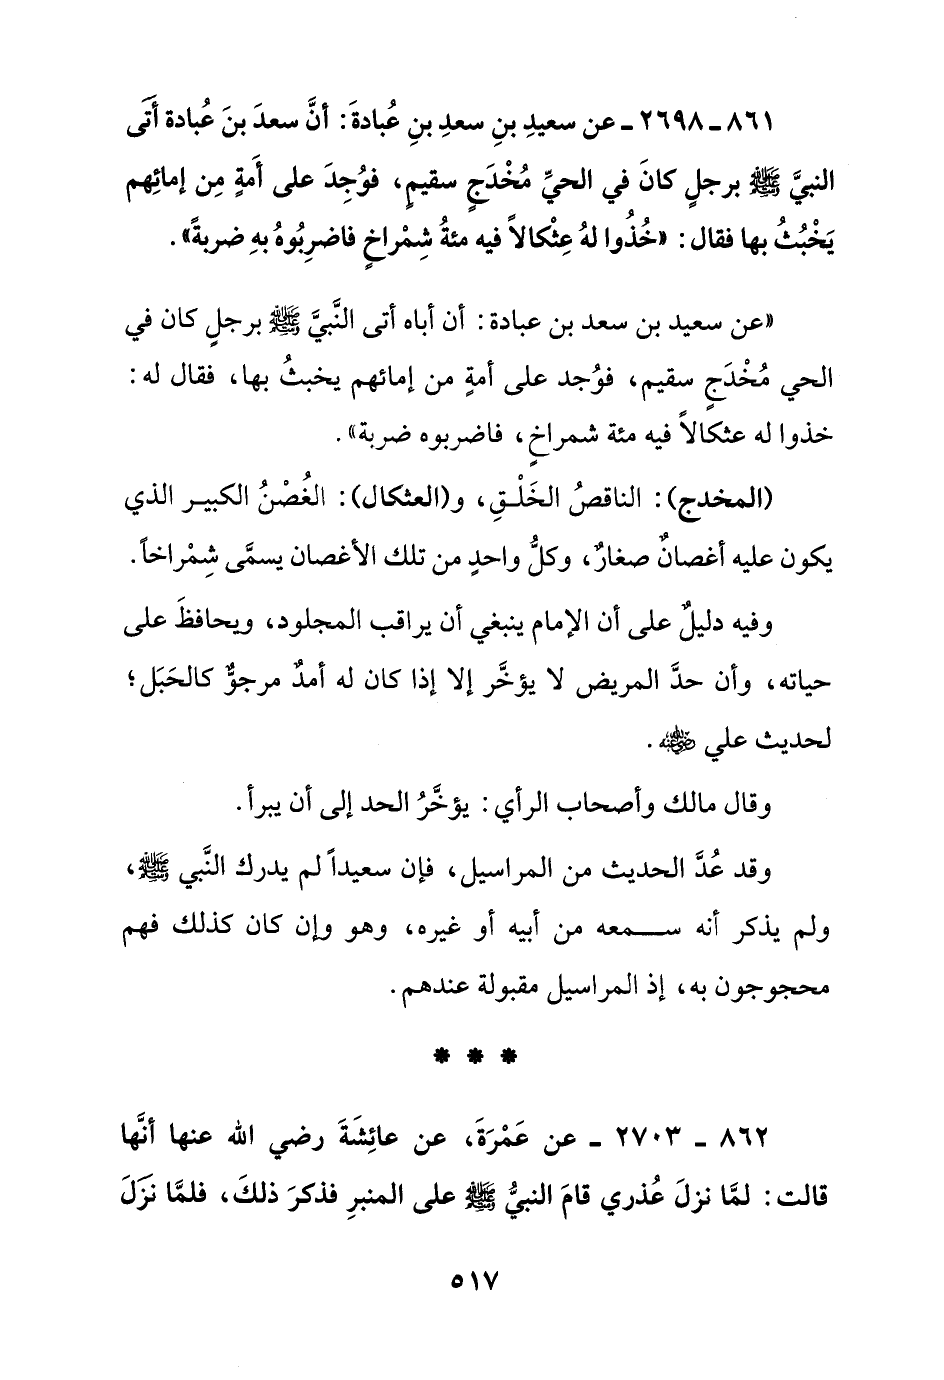 ٨٦١ ـ ٢٦٩٨ ـ عن سعيدِ بنِ سعدِ بنِ عُبادةَ: أنَّ سعدَ بنَ عُبادة أَتَى
النبيَّ ﷺ برجلٍ كانَ في الحيِّ مُخْدَجٍ سقيمٍ، فوُجِدَ على أَمةٍ مِن إمائِهم
يَخْبُثُ بها فقال: «خُذُوا لهُ عِثْكالاً فيه مئةُ شِمْراخٍ فاضرِبُوهُ بهِ ضربةً».
«عن سعيد بن سعد بن عبادة: أن أباه أتى النَّبيَّ ﷺ برجلٍ كان في
الحي مُخْدَجٍ سقيم، فوُجد على أمةٍ من إمائهم يخبثُ بها، فقال له:
خذوا له عثكالاً فيه مئة شمراخٍ، فاضربوه ضربة».
(المخدج): الناقصُ الخَلْقِ، و(العثكال): الغُصْنُ الكبير الذي
يكون عليه أغصانٌ صغارٌ، وكلُّ واحدٍ من تلك الأغصان يسمَّى شِمْراخاً.
وفيه دليلٌ على أن الإمام ينبغي أن يراقب المجلود، ويحافظَ على
حياته، وأن حدَّ المريض لا يؤخَّر إلا إذا كان له أمدٌ مرجوٌّ كالحَبَل؛
لحديث علي ﵁.
وقال مالك وأصحاب الرأي: يؤخَّرُ الحد إلى أن يبرأ.
وقد عُدَّ الحديث من المراسيل، فإن سعيداً لم يدرك النَّبي ﷺ،
ولم يذكر أنه سـمعه من أبيه أو غيره، وهو وإن كان كذلك فهم
محجوجون به، إذ المراسيل مقبولة عندهم.
* * *
٨٦٢ ـ ٢٧٠٣ ـ عن عَمْرَةَ، عن عائِشَةَ رضي الله عنها أنَّها
قالت: لمَّا نزلَ عُذري قامَ النبيُّ ﷺ على المنبرِ فذكرَ ذلكَ، فلمَّا نَزَلَ
٥١٧